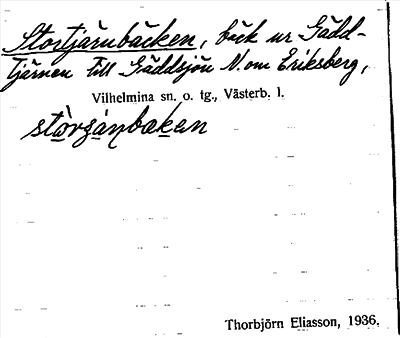 Stortjärnbäcken, bäck ur Gädd-
tjärnen till Gäddsjön N. om Eriksberg,
Vilhelmina sn. o. tg., Västerb. l.
Thorbjörn Eliasson, 1936.